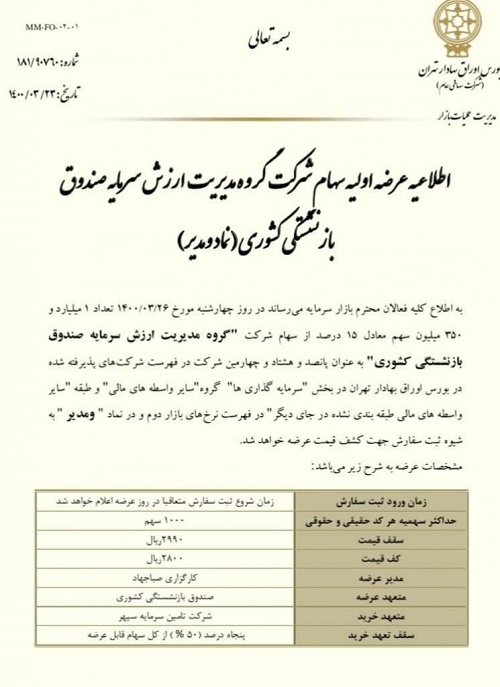 بورس اوراق بهادار تهران
(شرکت سهامی عام)
مدیریت عملیات بازار
بسمه تعالی
MM-FO-۰۲-۰۱
شماره: ۱۸۱/۹۰۷۶۰
تاریخ: ۱۴۰۰/۰۳/۲۳
اطلاعیه عرضه اولیه سهام شرکت گروه مدیریت ارزش سرمایه صندوق
بازنشستگی کشوری (نماد ومدیر)
به اطلاع کلیه فعالان محترم بازار سرمایه می‌رساند در روز چهارشنبه مورخ ۱۴۰۰/۰۳/۲۶ تعداد ۱ میلیارد و
۳۵۰ میلیون سهم معادل ۱۵ درصد از سهام شرکت "گروه مدیریت ارزش سرمایه صندوق
بازنشستگی کشوری" به عنوان پانصد و هشتاد و چهارمین شرکت در فهرست شرکت‌های پذیرفته شده
در بورس اوراق بهادار تهران در بخش "سرمایه گذاری ها" گروه"سایر واسطه های مالی" و طبقه "سایر
واسطه های مالی طبقه بندی نشده در جای دیگر" در فهرست نرخ‌های بازار دوم و در نماد " ومدیر " به
شیوه ثبت سفارش جهت کشف قیمت عرضه خواهد شد.
مشخصات عرضه به شرح زیر می‌باشد:
زمان ورود ثبت سفارش زمان شروع ثبت سفارش متعاقبا در روز عرضه اعلام خواهد شد
حداکثر سهمیه هر کد حقیقی و حقوقی ۱۰۰۰ سهم
سقف قیمت ۲۹۹۰ریال
کف قیمت ۲۸۰۰ریال
مدیر عرضه کارگزاری صباجهاد
متعهد عرضه صندوق بازنشستگی کشوری
متعهد خرید شرکت تامین سرمایه سپهر
سقف تعهد خرید پنجاه درصد (۵۰ %) از کل سهام قابل عرضه